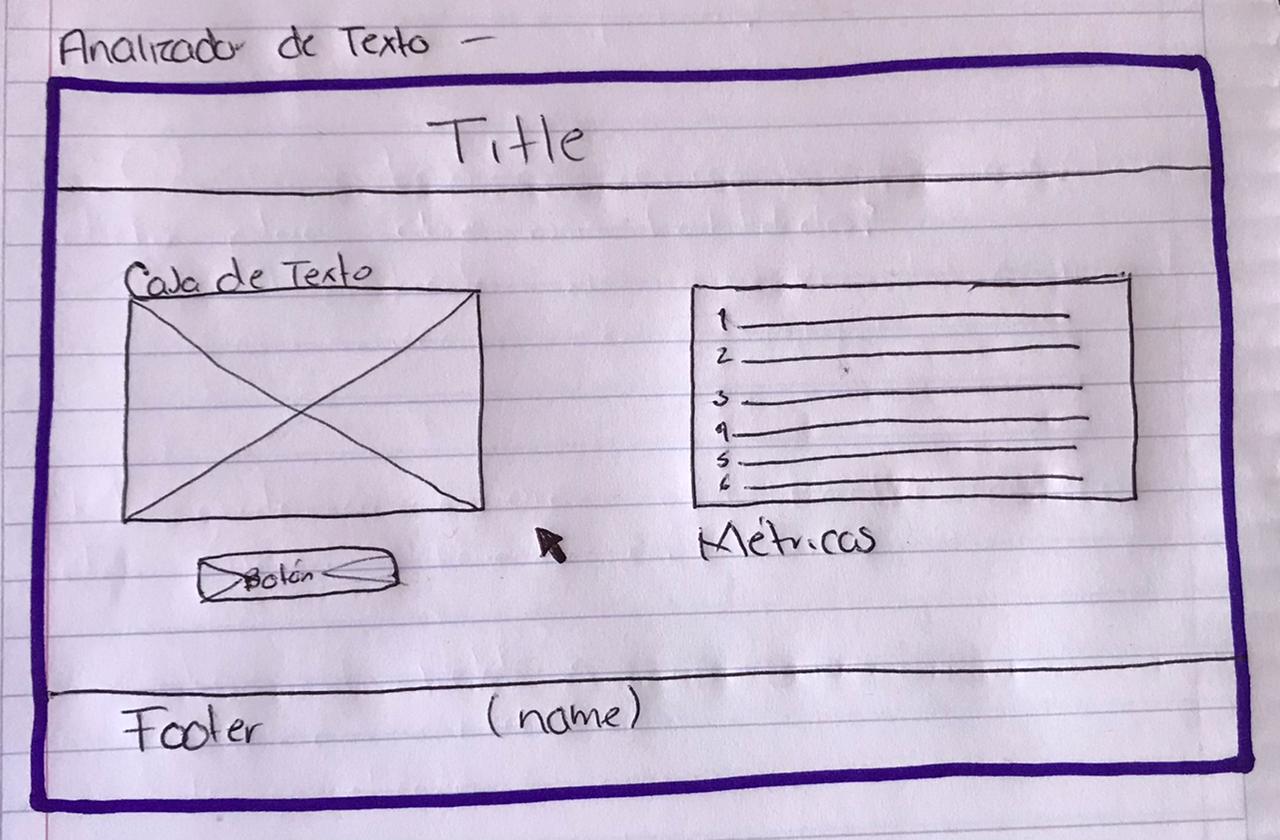 Analizador de Texto —
Title
Caja de Texto
1
2
3
4
5
6
Botón
Métricas
Footer (name)